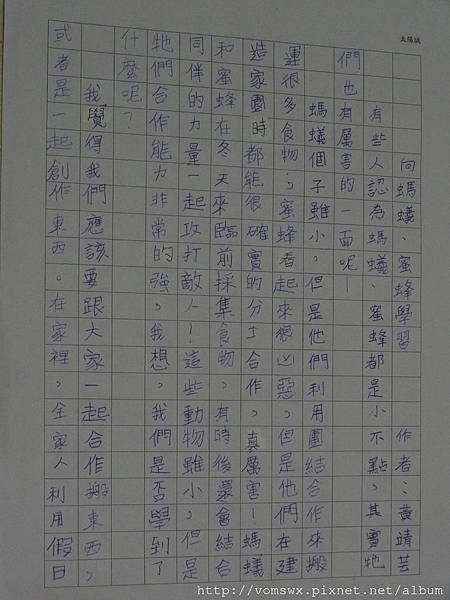 太陽城
向螞蟻、蜜蜂學習 作者:黃靖芸
有些人認為螞蟻、蜜蜂都是小不點,其實牠
們也有厲害的一面呢!
螞蟻個子雖小,但是他們利用團結合作來搬
運很多食物;蜜蜂看起來很凶惡,但是他們在建
造家園時都能很確實的分工合作,真厲害!螞蟻
和蜜蜂在冬天來臨前採集食物,有時後還會結合
同伴的力量一起攻打敵人!這些動物雖小,但是
牠們合作能力非常的強。我想,我們是否學到了
什麼呢?
我覺得我們應該要跟大家一起合作搬東西,
或者是一起創作東西。在家裡,全家人利用假日
http://vomswx.pixnet.net/album